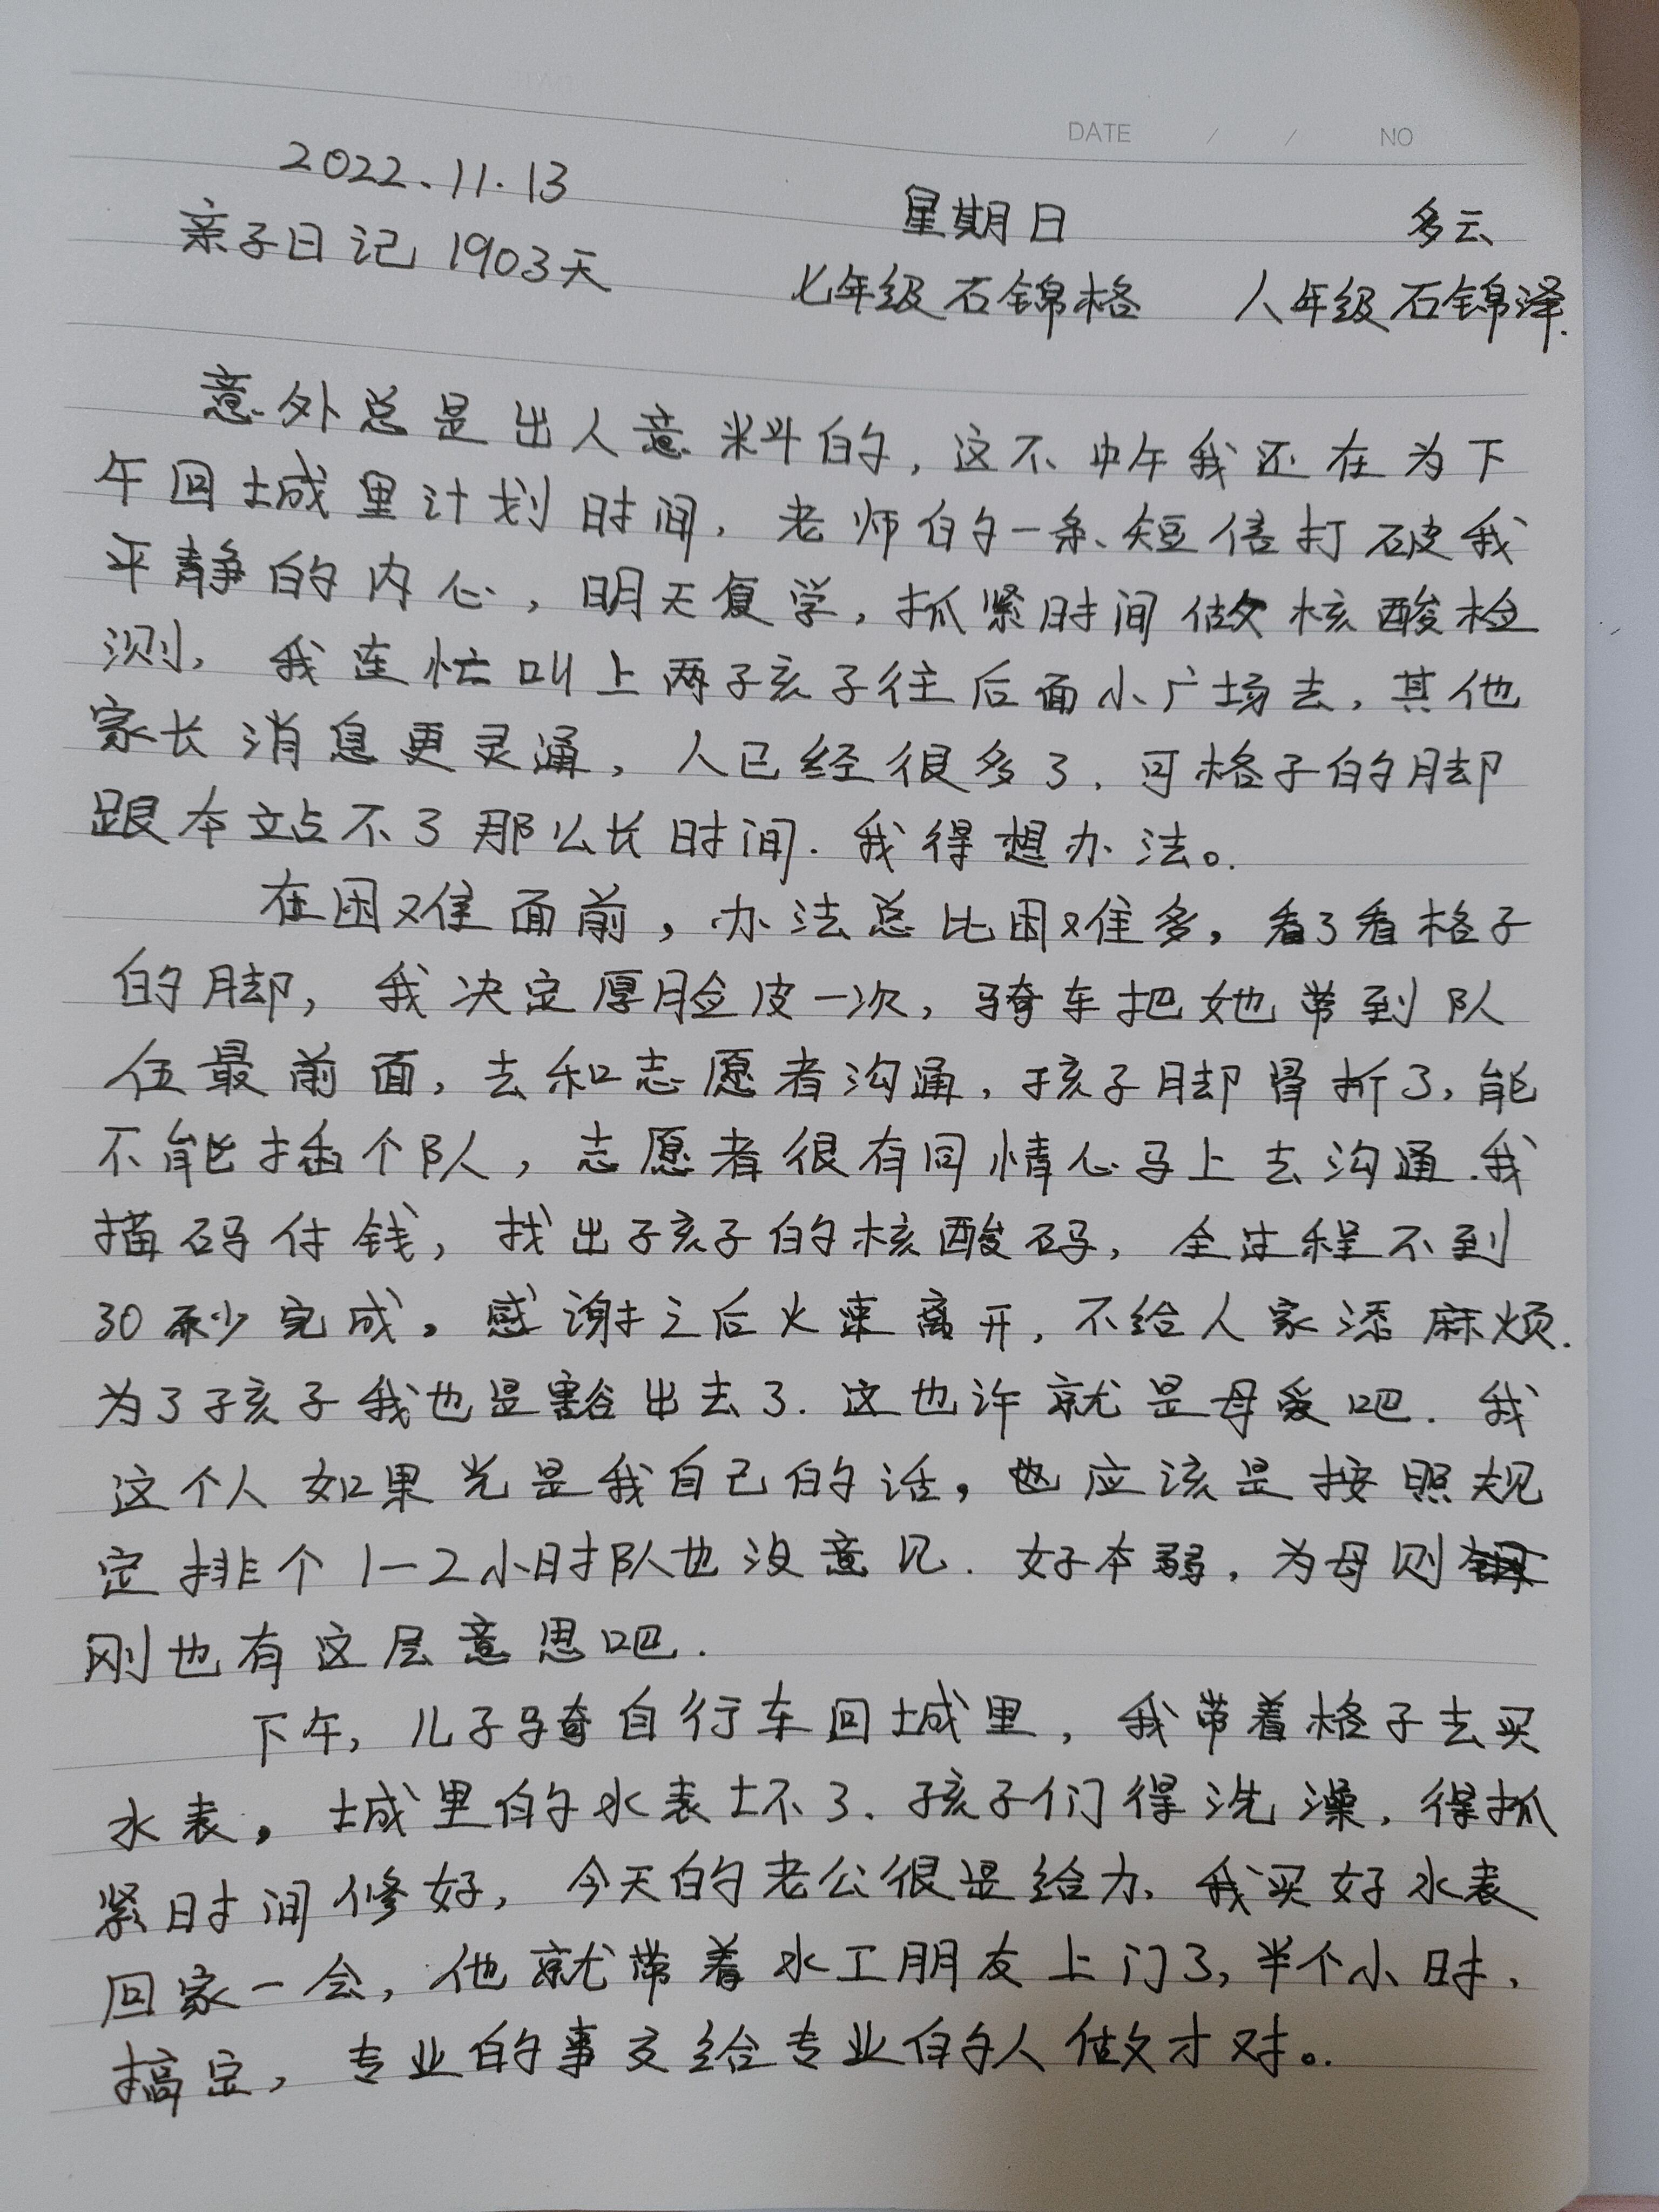 DATE / / NO
2022.11.13 星期日 多云
亲子日记 1903天 七年级石锦格 八年级石锦泽.
意外总是出人意料的,这不中午我还在为下
午回城里计划时间,老师的一条短信打破我
平静的内心,明天复学,抓紧时间做核酸检
测,我连忙叫上两子孩子往后面小广场去,其他
家长消息更灵通,人已经很多了,可格子的脚
跟本站不了那么长时间.我得想办法。
在困难面前,办法总比困难多,看了看格子
的脚,我决定厚脸皮一次,骑车把她带到队
伍最前面,去和志愿者沟通,孩子脚骨折了,能
不能插个队,志愿者很有同情心马上去沟通.我
描码付钱,找出孩子的核酸码,全过程不到
30秒完成。感谢之后火速离开,不给人家添麻烦.
为了孩子我也是豁出去了.这也许就是母爱吧.我
这个人如果光是我自己的话,也应该是按照规
定排个1-2小时队也没意见.好本弱,为母则
刚也有这层意思吧.
下午,儿子骑自行车回城里,我带着格子去买
水表,城里的水表坏了.孩子们得洗澡,得抓
紧时间修好,今天的老公很是给力,我买好水表
回家一会,他就带着水工朋友上门了,半个小时,
搞定,专业的事交给专业的人做才对。